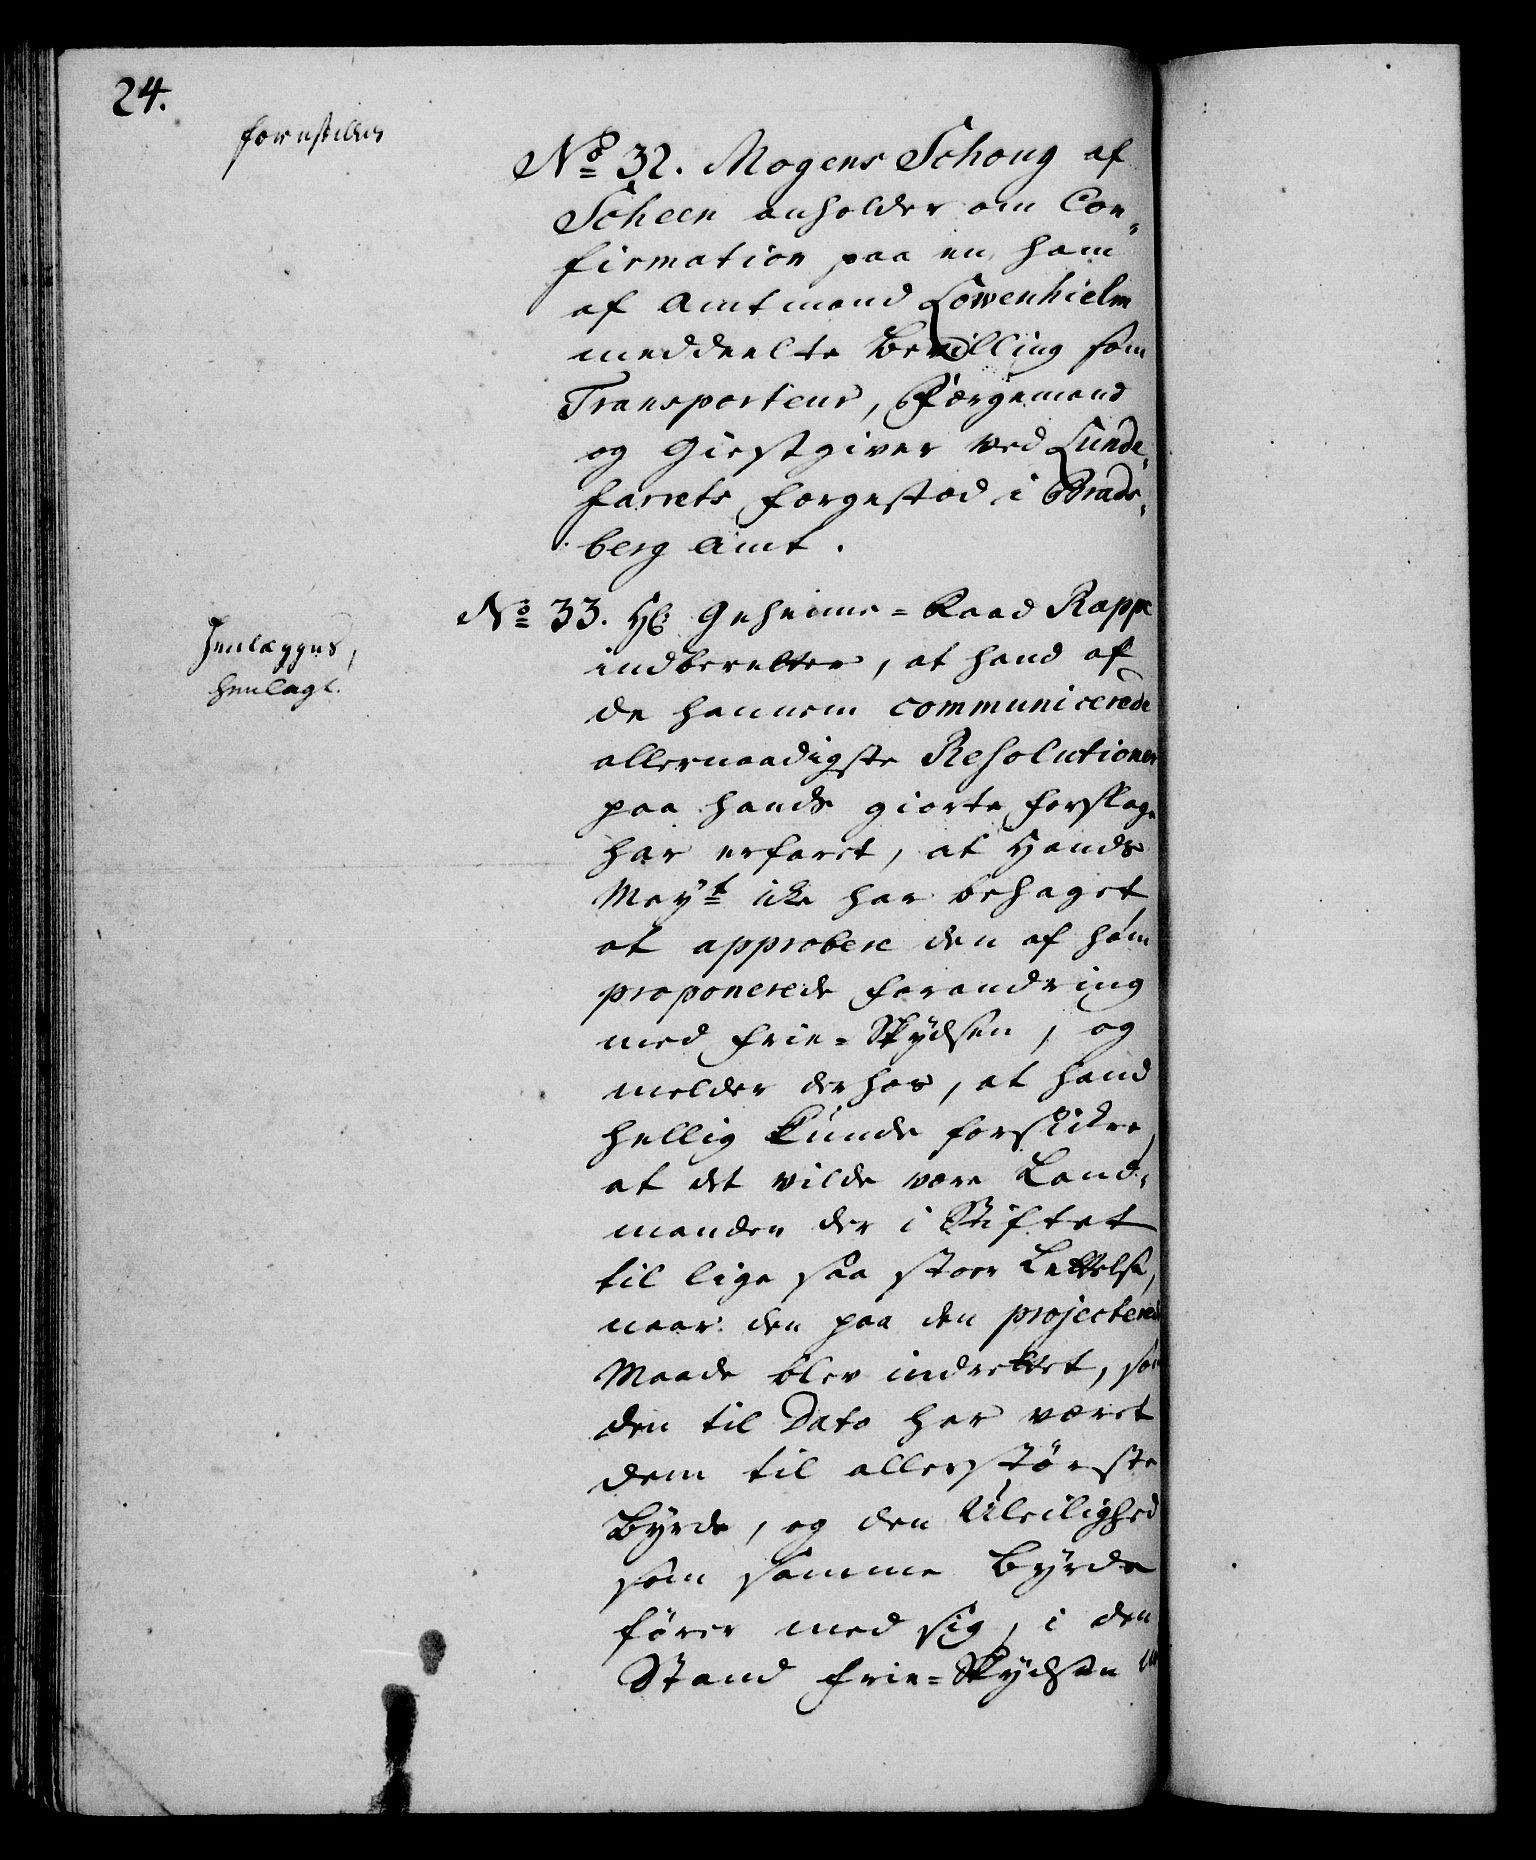 24.
forestilles
No 32. Mogens Schoug af
Scheen anholder om Con-
firmation paa en ham
af Amtmand Löwenhielm
meddeelte Bevilling som
Transporteur, Færgemand
og Giestgiver ved Lunde-
farrets Færgestæd i Brads-
berg Amt.
Henlægges,
henlagt.
No 33. Hr Geheime-Raad Rappe
indberetter, at hand af
de hannem communicerede
allernaadigste Resolutioner
paa hands giorte Forslage
har erfaret, at Hands
Mayt icke har behaget
at approbere den af ham
proponerede Forandring
med Frie-Skydsen, og
melder derhos, at hand
hellig kunde forsickre,
at det vilde være Land-
manden der i Stiftet
til lige saa stoer Lettelse,
naar den paa den projecterede
Maade blev indrettet, som
den til Dato har været
dem til allerstørste
Byrde, og den Uleilighed
som samme Byrde
fører med sig, i den
Stand Frie-Skydsen